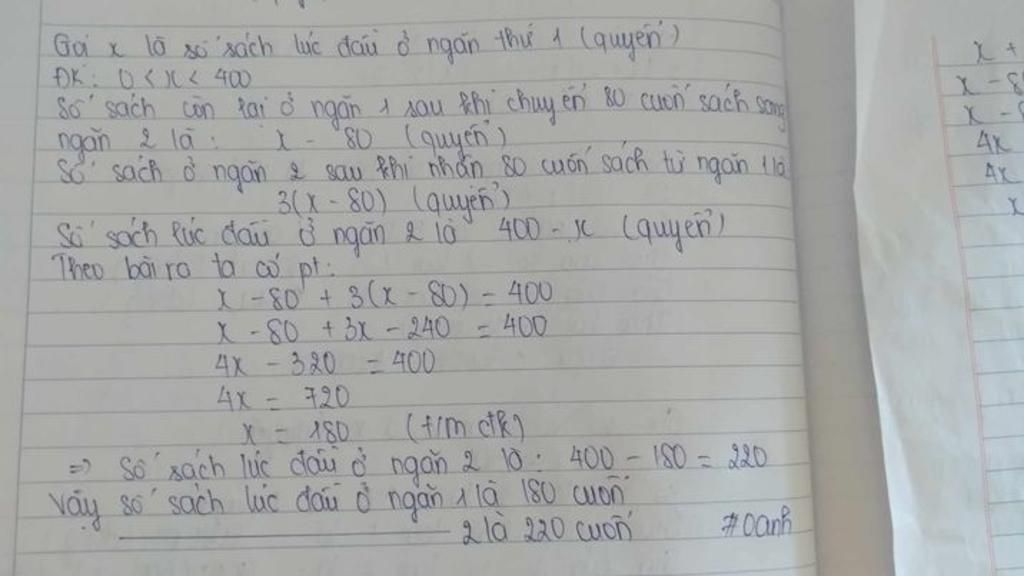 Gọi x là số sách lúc đầu ở ngăn thứ 1 (quyển)
ĐK: 0 < x < 400
Số sách còn lại ở ngăn 1 sau khi chuyển 80 cuốn sách sang
ngăn 2 là: x - 80 (quyển)
Số sách ở ngăn 2 sau khi nhận 80 cuốn sách từ ngăn 1 là
3(x - 80) (quyển)
Số sách lúc đầu ở ngăn 2 là 400 - x (quyển)
Theo bài ra ta có pt:
x - 80 + 3(x - 80) = 400
x - 80 + 3x - 240 = 400
4x - 320 = 400
4x = 720
x = 180 (t/m đk)
=> Số sách lúc đầu ở ngăn 2 là: 400 - 180 = 220
Vậy số sách lúc đầu ở ngăn 1 là 180 cuốn
2 là 220 cuốn #Oanh
x +
x - 8
x -
4x
4x
x